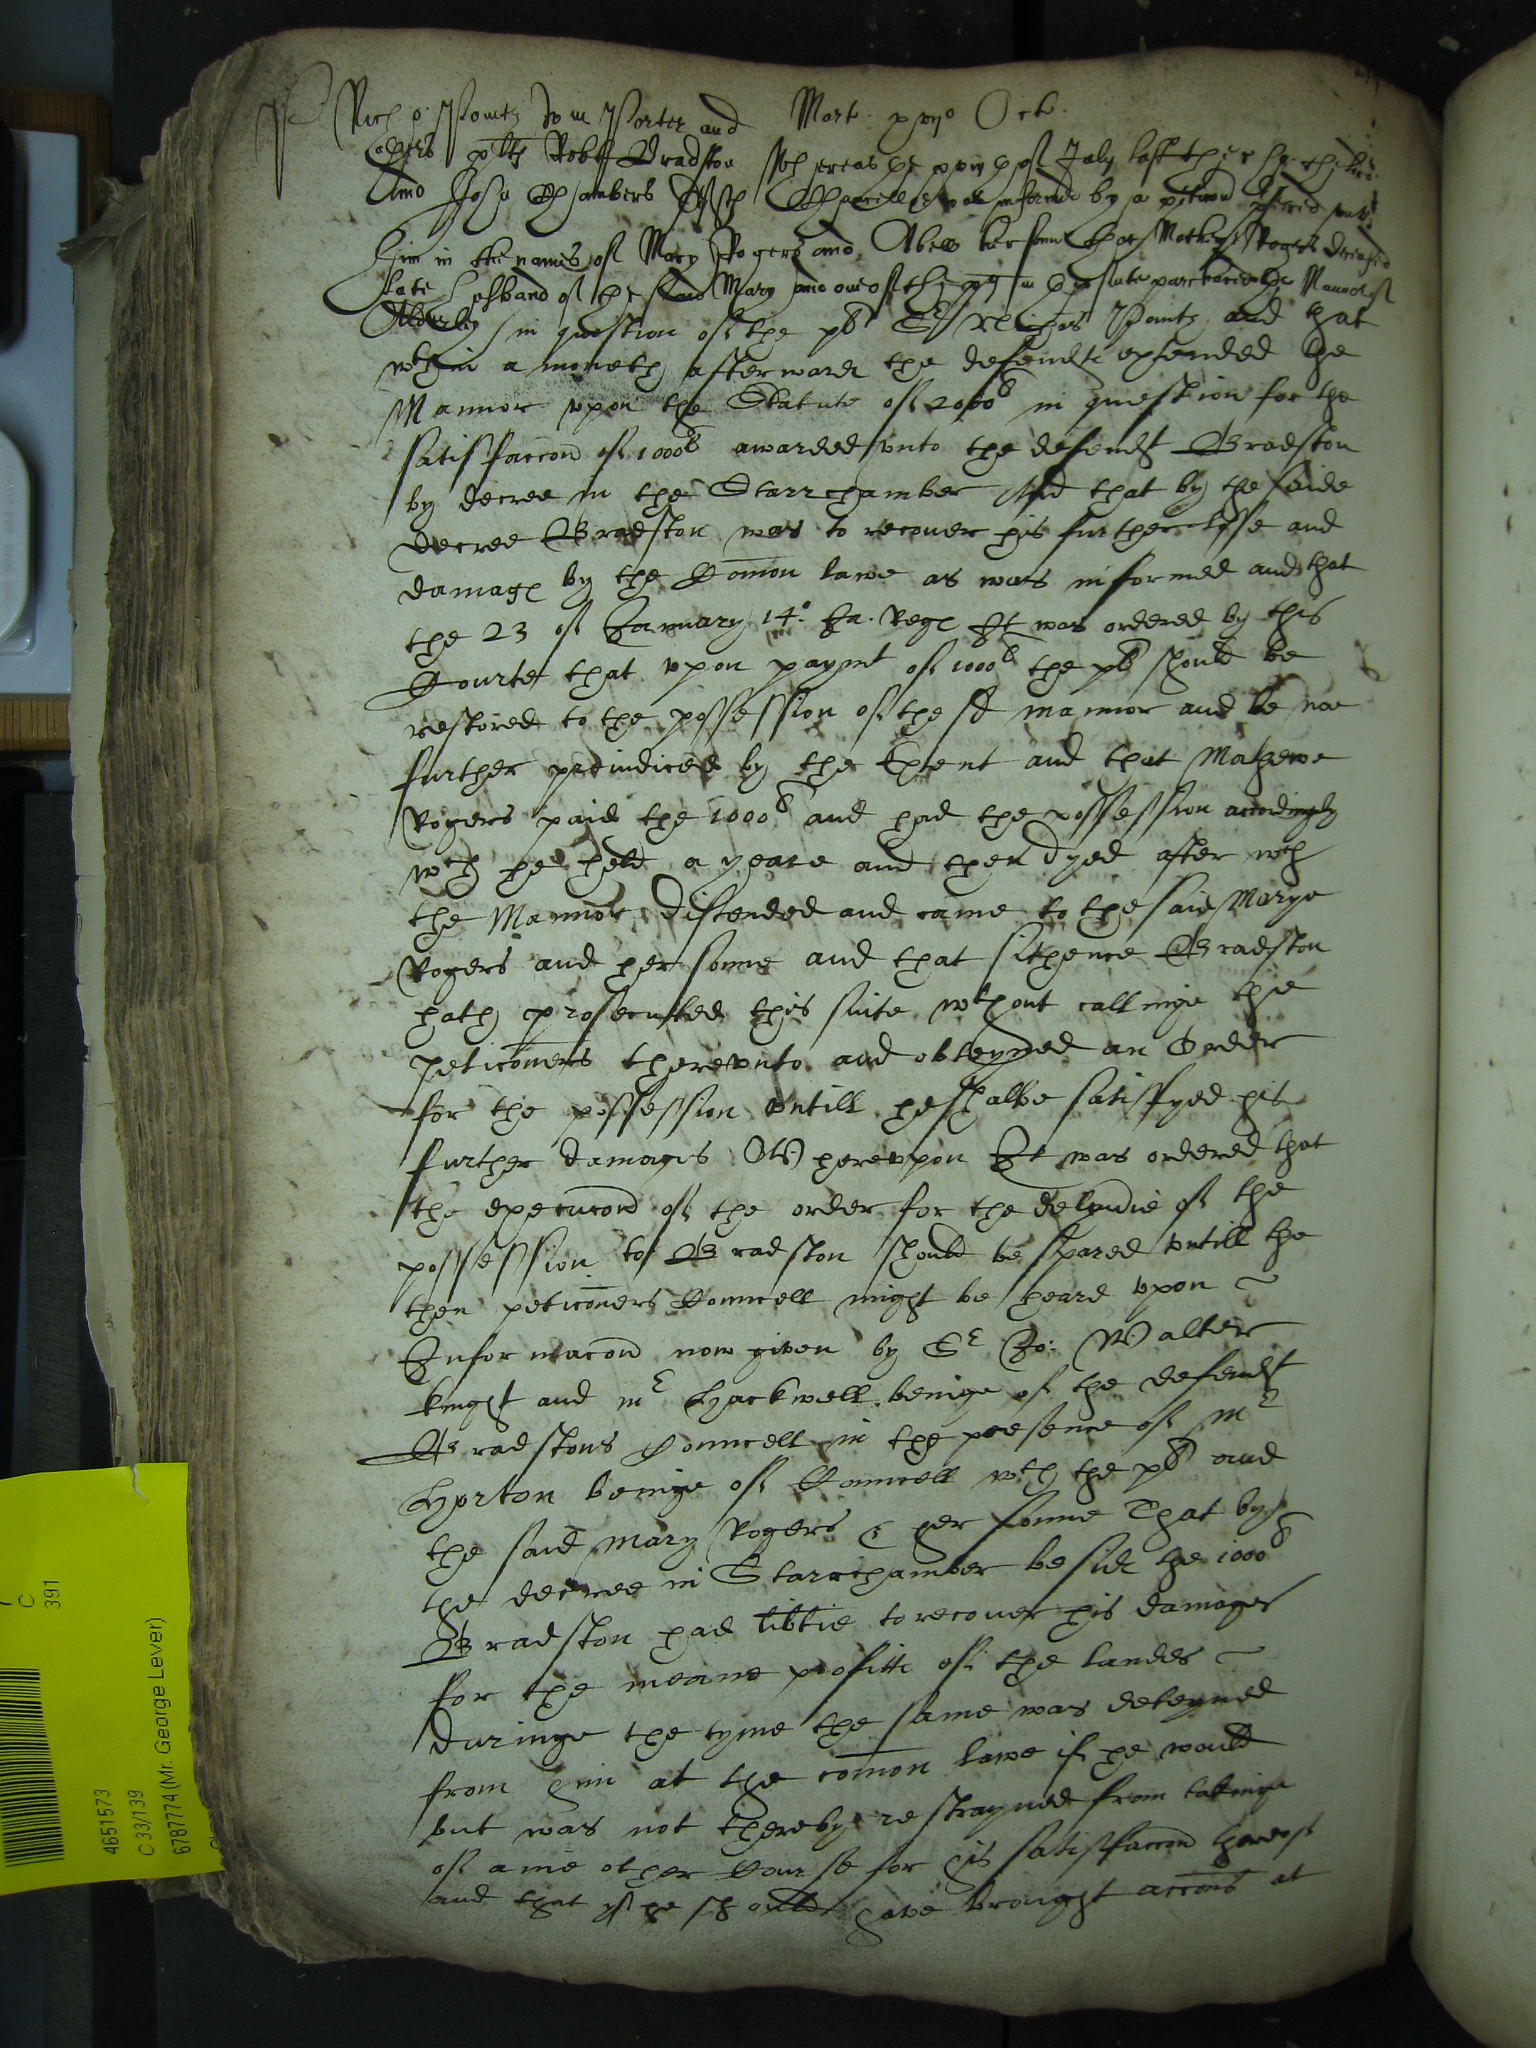 Nich o Pointz Jo m Porter and Mart. xxvjo Octb.
Rogers plts Robt Bradston Whereas the xxvijth of July last the
and John Chambers Deftes was informed by a peticon
him in the names of Mary Rogers and Abell her sonne that Mathewe Rogers deceased
late husband of the said Mary and one of the in the suite purchased the Mannor of
Alderley in question of the plt Sr Nichas Pointz and that
wthin a moneth afterwards the defendte extended the
Mannor vpon the Statute of 2000l in question for the
satisfaccon of 1000l awarded vnto the defendt Bradston
by decree in the Starrchamber And that by the saide
decree Bradston was to recouer his further losse and
damage by the Comon lawe as was informed and that
the 23 of January 14o Ja. Regs It was ordered by this
Courte that vpon paymt of 1000l the plt should be
restored to the possession of the sd mannor and be noe
further preiudiced by the Extent and that Mathewe
Rogers paid the 1000l and had the possession accordingly
wch he held a yeare and then dyed after wch
the Mannor discended and came to the said Marye
Rogers and her sonne and that sithence Bradston
hath prosecuted this suite wthout callinge the
peticoners therevnto and obteyned an Order
for the possession vntill he shalbe satisfyed his
further damages Wherevpon It was ordered that
the execucon of the order for the delyuie of the
possession to Bradston should be spared vntill the
then peticoners Councell might be heard vpon
Informacon now given by Sr Jo: Walter
knight and mr Hackwell beinge of the defendt
Bradstons Councell in the presence of mr
Hyrton beinge of Councell wth the plt and
the said Mary Rogers & her sonne That by
the decree in Starrchamber beside the 1000l
Bradston had libtie to recouer his damages
for the meane profitte of the landes
duringe the tyme the same was deteyned
from him at the comon lawe if he would
but was not thereby restrayned from takinge
of anie other Course for his satisfaccon thereof
and that yf he should have brought accons at
4651573
C 33/139
6787774 (Mr. George Lever)
C
391